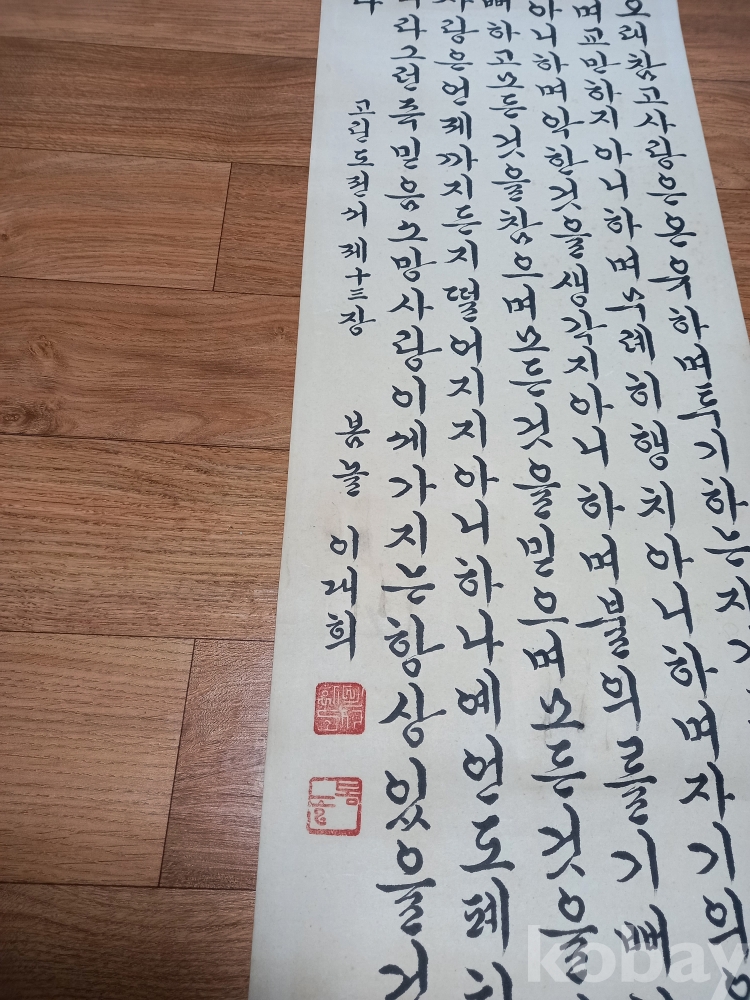 오래참고사랑은온유하며투기하는자가
며교만하지아니하며무례히행치아니하며자기의
아니하며악한것을생각지아니하며불의를기뻐
뻐하고모든것을참으며모든것을믿으며모든것을
사랑은언제까지든지떨어지지아니하나예언도폐
라그런즉믿음소망사랑이세가지는항상있을것
고린도전서 제十三장 봄늘 이래희
kobay